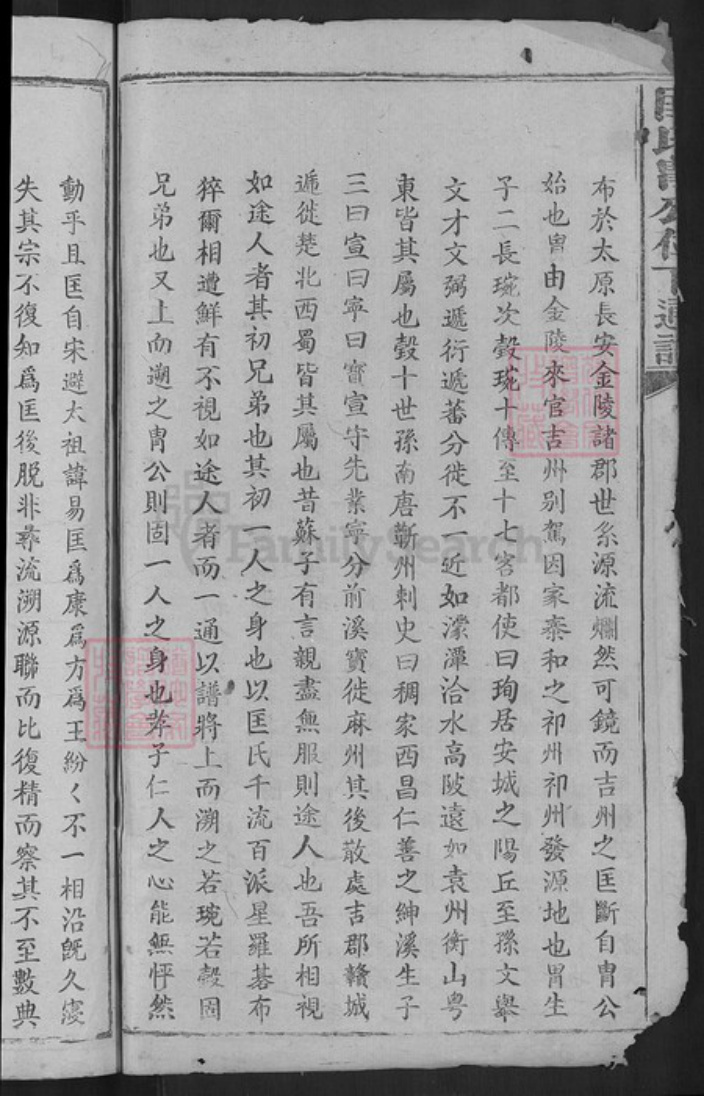 匡氏冑公位下通譜
布於太原長安金陵諸郡世系源流爛然可鏡而吉州之匡斷自冑公
始也冑由金陵來官吉州别駕因家泰和之祁州祁州發源地也冑生
子二長琬次瑴琬十傳至十七客都使曰珣居安城之陽丘至孫文舉
文才文弼遞衍遞蕃分徙不一近如濛潭洽水高陂遠如袁州衡山粤
東皆其屬也瑴十世孫南唐蘄州刺史曰稠家西昌仁善之紳溪生子
三曰宣曰寧曰寳宣守先業寧分前溪寳徙麻州其後散處吉郡贛城
遞徙楚北西蜀皆其屬也昔蘇子有言親盡無服則途人也吾所相視
如途人者其初兄弟也其初一人之身也以匡氏千流百派星羅碁布
猝爾相遭鮮有不視如途人者而一通以譜將上而溯之若琬若瑴固
兄弟也又上而遡之冑公則固一人之身也孝子仁人之心能無怦然
動乎且匡自宋避太祖諱易匡爲康爲方爲王紛々不一相沿旣久寖
失其宗不復知爲匡後脱非尋流溯源聯而比復精而察其不至數典
FamilySearch